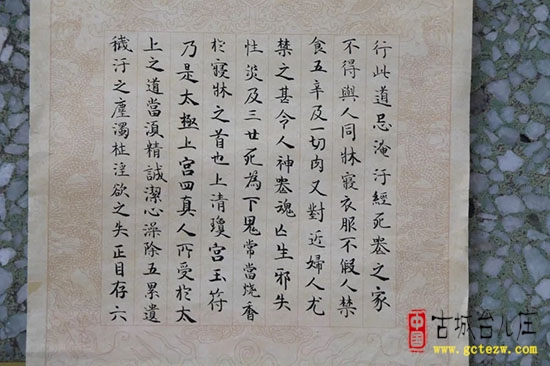 行此道忌淹汙經死喪之家
不得與人同牀寢衣服不假人禁
食五辛及一切肉又對近婦人尤
禁之甚令人神喪魂亡生邪失
性災及三世死為下鬼常當燒香
於寢牀之首也上清瓊宮玉符
乃是太極上宮四真人所受於太
上之道當須精誠潔心澡除五累遺
穢汙之塵濁杜淫欲之失正目存六
中国
古城台儿庄
www.gctezw.com